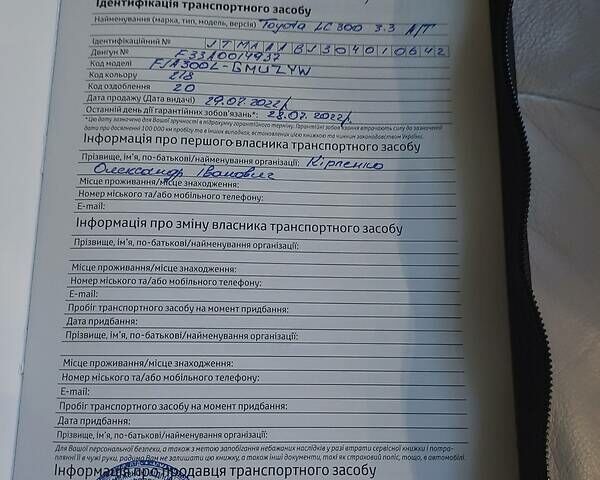 Ідентифікація транспортного засобу
Найменування (марка, тип, модель, версія) Toyota LC 300 3.3 A/T
Ідентифікаційний №
Двигун № F33A0014937
Код моделі FJA300L-GMUZYW
Код кольору 218
Код оздоблення 20
Дата продажу (Дата видачі) 29.07.2022р
Останній день дії гарантійних зобов'язань* : 28.07.2022р.
* Цю дату зазначено для Вашої зручності в відрахунку гарантійного терміну. Гарантійні зобов'язання втрачають силу до зазначеної
дати при досягненні 100 000 км пробігу та в інших випадках, встановлених цією книжкою та чинним законодавством України.
Інформація про першого власника транспортного засобу
Прізвище, ім'я, по-батькові/найменування організації: Кірпенко
Олександр Іванович
Місце проживання/місце знаходження:
Номер міського та/або мобільного телефону:
E-mail:
Інформація про зміну власника транспортного засобу
Прізвище, ім'я, по-батькові/найменування організації:
Місце проживання/місце знаходження:
Номер міського та/або мобільного телефону:
E-mail:
Пробіг транспортного засобу на момент придбання:
Дата придбання:
Прізвище, ім'я, по-батькові/найменування організації:
Місце проживання/місце знаходження:
Номер міського та/або мобільного телефону:
E-mail:
Пробіг транспортного засобу на момент придбання:
Дата придбання:
Прізвище, ім'я, по-батькові/найменування організації:
Для Вашої персональної безпеки, а також з метою запобігання небажаних наслідків у разі втрати сервісної книжки і потра-
плянні її в чужі руки, радимо Вам не залишати цю книжку, а також інші документи, такі як страховий поліс, тощо, в автомобілі.
Інформація про продавця транспортного засобу